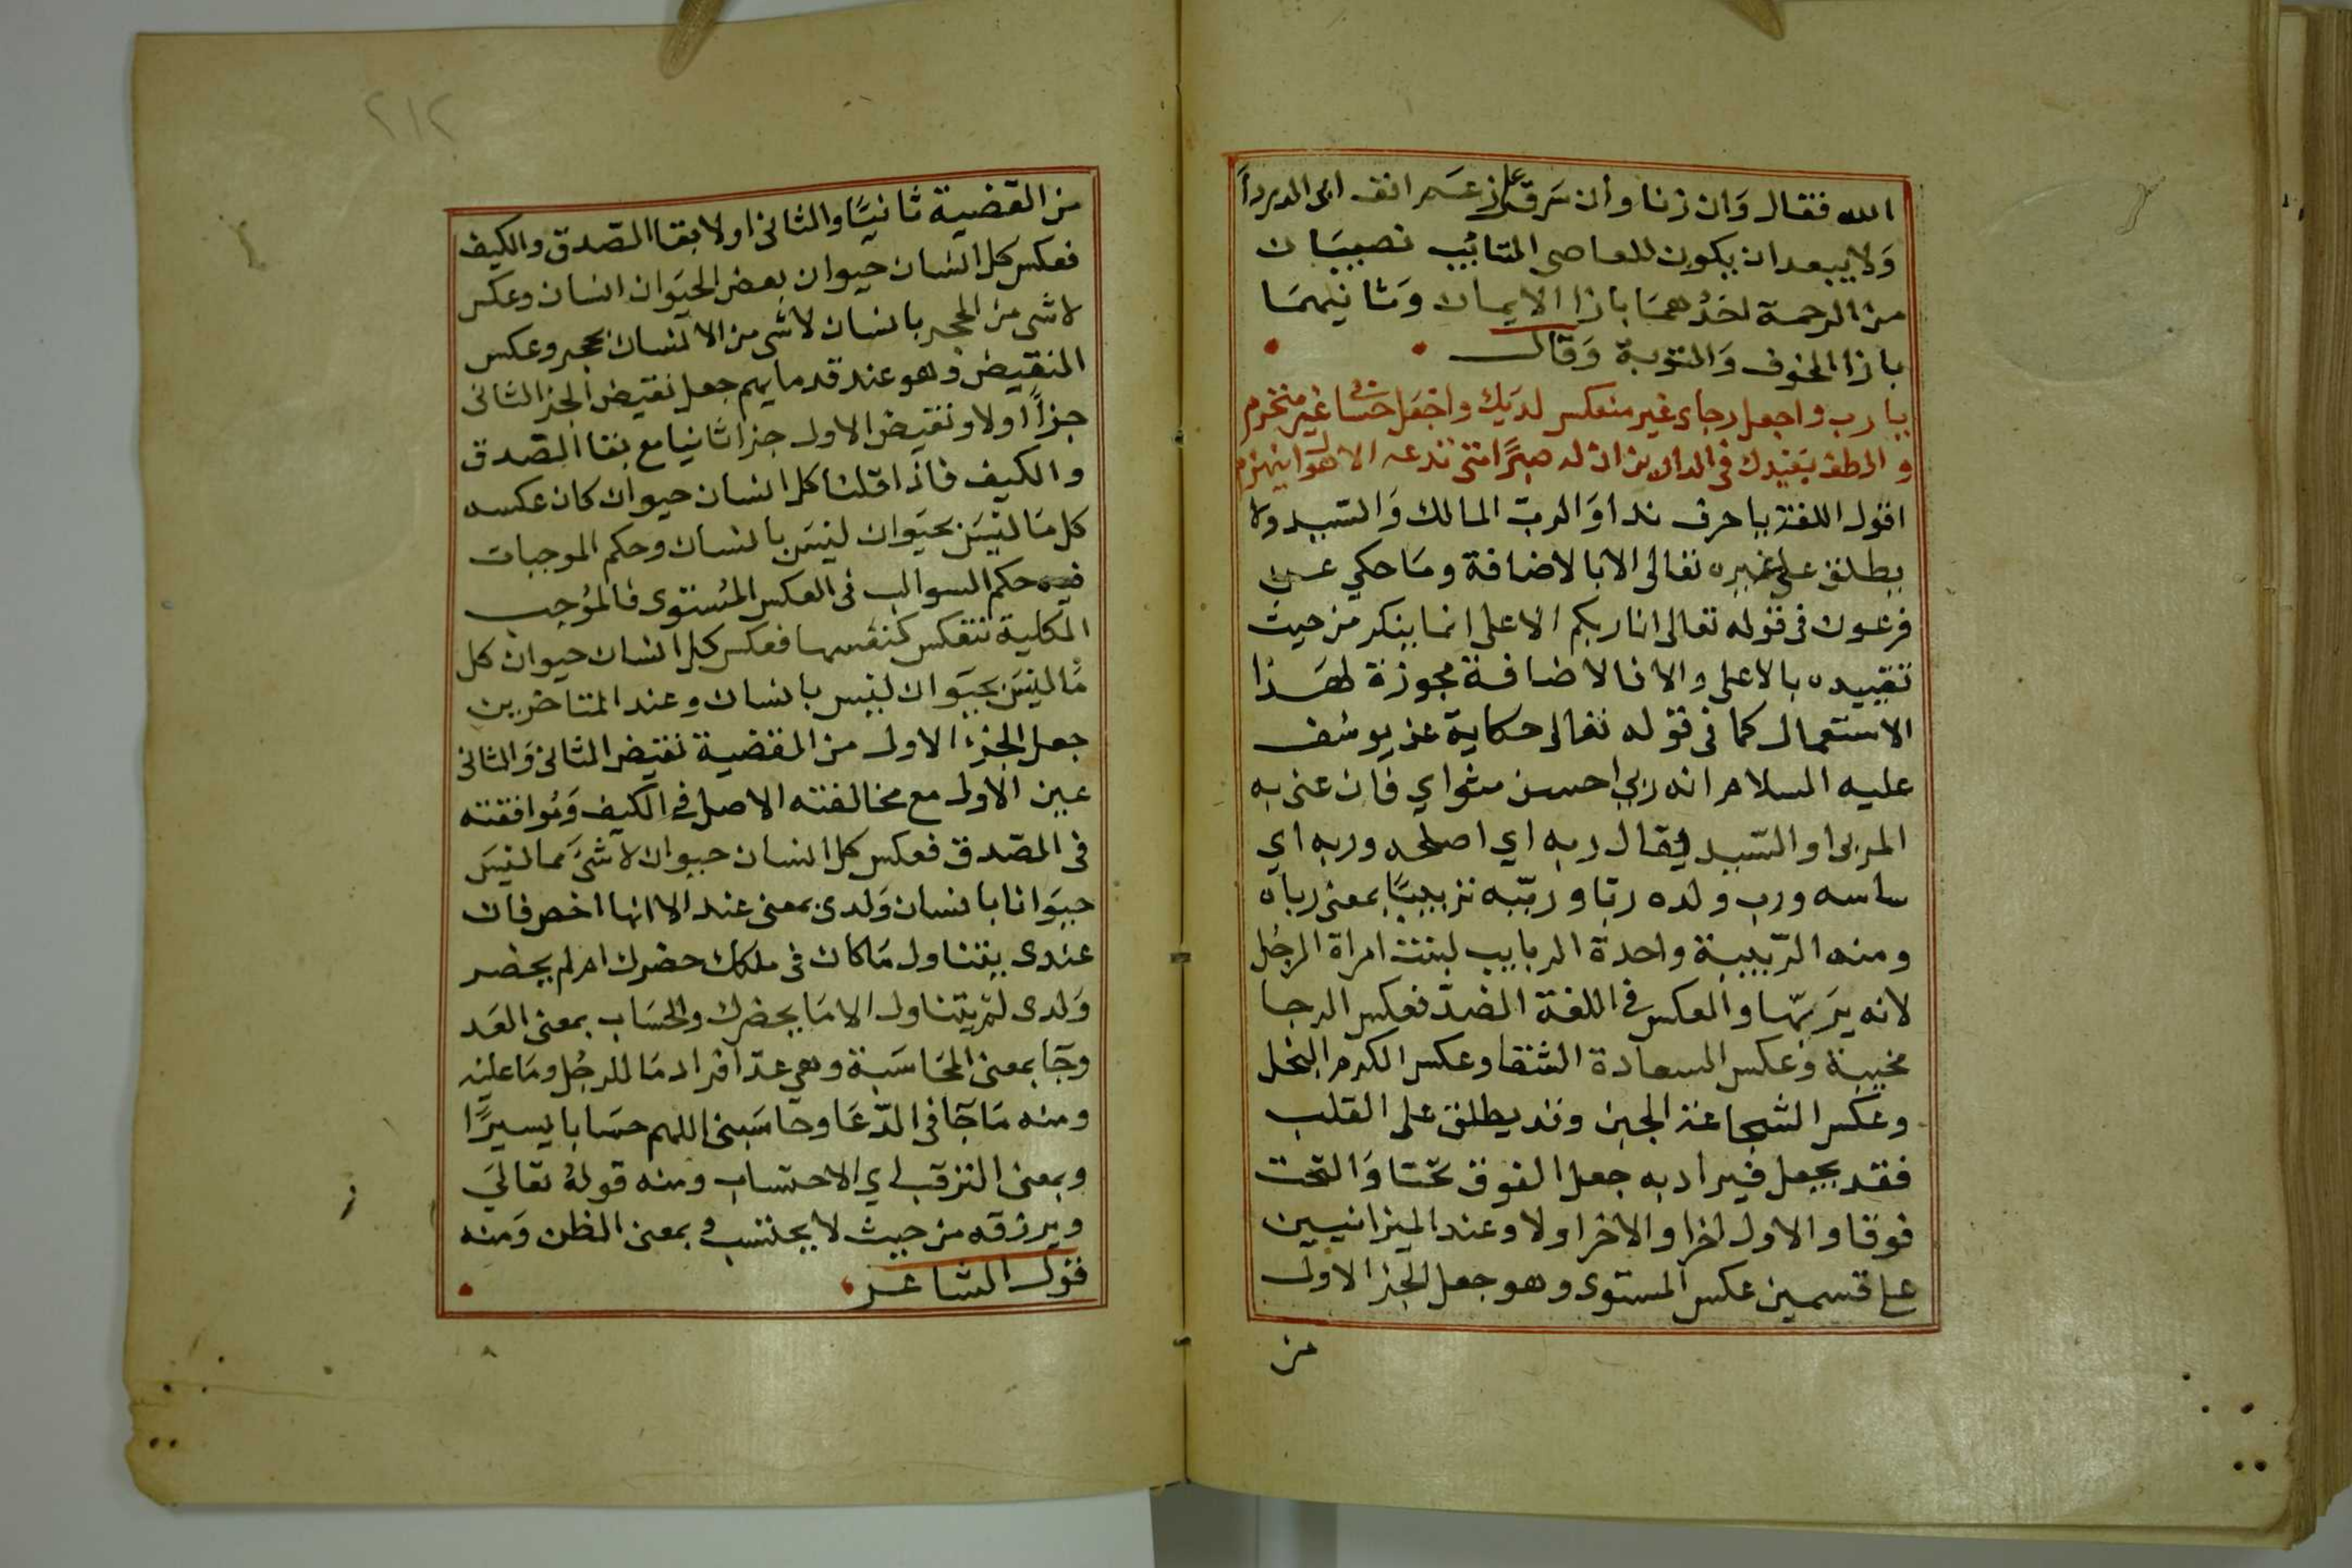 الله فقال وان زنا وان سرق على زعم انف ابى الدرداً
ولا يبعد ان يكون للعاصى التائب نصيبان
من الرحمة احدهما بازا الايمان وثانيهما
بازا الخوف والتوبة وقال
يا رب واجعل رجاى غير منعكس لديك واجعل حسابى غير منخرم
والطف بعبدك فى الدارين ان له صبرًا متى تدعه الاهوا ينهزم
اقول اللغة يا حرف ندا والرب المالك والسيد ولا
يطلق على غيره تعالى الا بالاضافة وما حكي عن
فرعون فى قوله تعالى انا ربكم الاعلى انما ينكر من حيث
تقييده بالاعلى والا فالاضافة مجوزة لهذا
الاستعمال كما فى قوله تعالى حكاية عن يوسف
عليه السلام انه ربي احسن مثواي فان عنى به
المربى او السيد يقال ربه اي اصلحه وربه اي
ساسه ورب ولده ربا وربّبه تربيبًا بمعنى رباه
ومنه الرّبيبة واحدة الربايب لبنت امراة الرجل
لانه يربّها والعكس فى اللغة الضدّ فعكس الرجا
مخيبة وعكس السعادة الشقا وعكس الكرم البخل
وعكس الشجاعة الجبن وقد يطلق على القلب
فقد يجعل فيراد به جعل الفوق تحتا والتحت
فوقا والاول اخرا والاخر اولا وعند الميزانيين
على قسمين عكس المستوى وهو جعل الجز الاول
من
٢١٢
من القضية ثانيًا والثانى اولا بقا الصدق والكيف
فعكس كل انسان حيوان بعض الحيوان انسان وعكس
لا شى من الحجر بانسان لا شى من الانسان بحجر وعكس
النقيض وهو عند قدمايهم جعل نقيض الجز الثانى
جزاً اولا ونقيض الاول جزا ثانيا مع بقا الصدق
والكيف فاذا قلنا كل انسان حيوان كان عكسه
كل ما ليس بحيوان ليس بانسان وحكم الموجبات
فيه حكم السوالب فى العكس المستوى فالموجب
الكلية تنعكس كنفسها فعكس كل انسان حيوان كل
ما ليس بحيوان ليس بانسان وعند المتاخرين
جعل الجزء الاول من القضية نقيض الثانى والثانى
عين الاول مع مخالفته الاصل فى الكيف وموافقته
فى الصدق فعكس كل انسان حيوان لا شئ مما ليس
حيوانا بانسان ولدى بمعنى عند الا انها اخص فان
عندى يتناول ما كان فى ملكك حضرك ام لم يحضر
ولدى لم يتناول الا ما يحضرك والحساب بمعنى العد
وجا بمعنى المحاسبة وهي عدّ افراد ما للرجل وما عليه
ومنه ما جا فى الدّعا وحاسبنى اللهم حسابا يسيرًا
وبمعنى الترقب اي الاحتساب ومنه قوله تعالي
ويرزقه من حيث لا يحتسب وبمعنى الظن ومنه
قول الشاعر